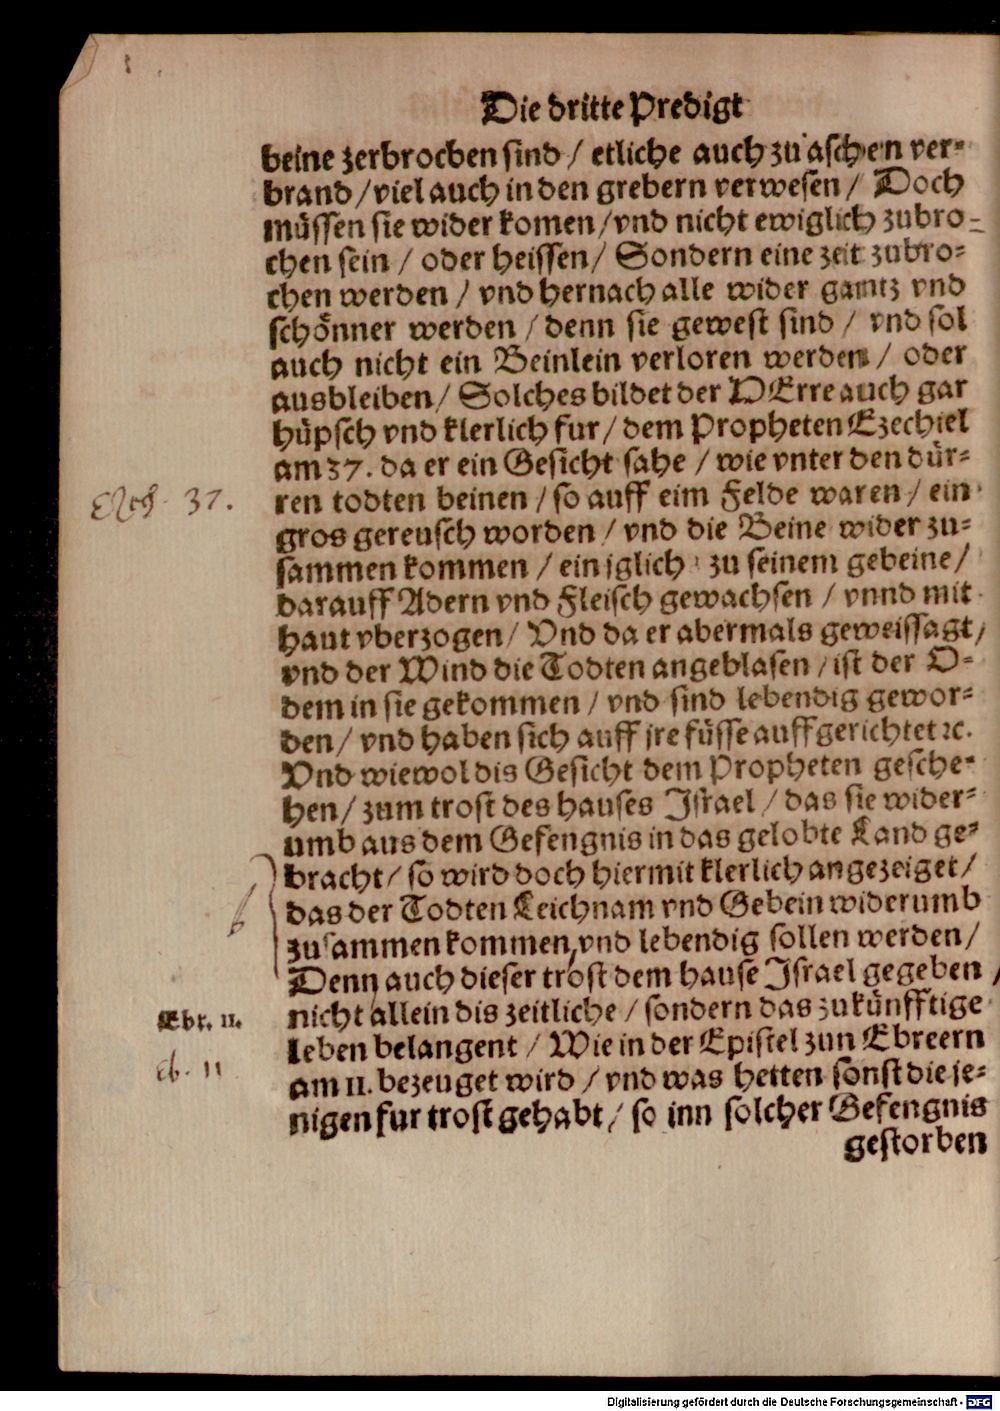 Die dritte Predigt
beine zerbrochen sind / etliche auch zu aschen ver-
brand / viel auch in den grebern verwesen / Doch
müssen sie wider komen / vnd nicht ewiglich zubro-
chen sein / oder heissen / Sondern eine zeit zubro-
chen werden / vnd hernach alle wider gantz vnd
schönner werden / denn sie gewest sind / vnd sol
auch nicht ein Beinlein verloren werden / oder
ausbleiben / Solches bildet der HErre auch gar
hüpsch vnd klerlich fur / dem Propheten Ezechiel
am 37. da er ein Gesicht sahe / wie vnter den dür-
ren todten beinen / so auff eim Felde waren / ein
gros gereusch worden / vnd die Beine wider zu-
sammen kommen / ein jglich zu seinem gebeine /
darauff Adern vnd Fleisch gewachsen / vnnd mit
haut vberzogen / Vnd da er abermals geweissagt /
vnd der Wind die Todten angeblasen / ist der O-
dem in sie gekommen / vnd sind lebendig gewor-
den / vnd haben sich auff jre füsse auffgerichtet ꝛc.
Vnd wiewol dis Gesicht dem Propheten gesche-
hen / zum trost des hauses Israel / das sie wider-
umb aus dem Gefengnis in das gelobte Land ge-
bracht / so wird doch hiermit klerlich angezeiget /
das der Todten Leichnam vnd Gebein widerumb
zusammen kommen, vnd lebendig sollen werden /
Denn auch dieser trost dem hause Israel gegeben /
nicht allein dis zeitliche / sondern das zukünfftige
leben belangent / Wie in der Epistel zun Ebreern
am 11. bezeuget wird / vnd was hetten sonst die je-
nigen fur trost gehabt / so inn solcher Gefengnis
gestorben
37.
Ebr. 11.
eb. 11
Digitalisierung gefördert durch die Deutsche Forschungsgemeinschaft - DFG